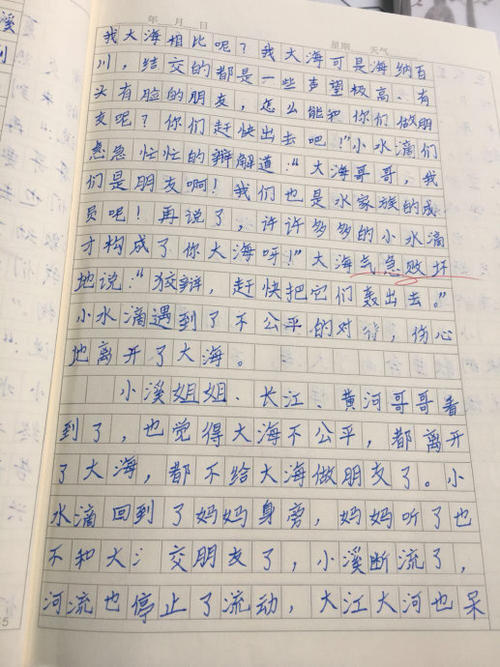 年 月 日 星期 天气
我大海相比呢？我大海可是海纳百
川，结交的都是一些声望极高、有
头有脸的朋友，怎么能把你们做朋
友呢？你们赶快出去吧！”小水滴们
急急忙忙的辩解道：“大海哥哥，我
们是朋友啊！我们也是水家族的成
员呢！再说了，许许多多的小水滴
才构成了你大海呀！”大海气急败坏
地说：“狡辩，赶快把它们轰出去。”
小水滴遇到了不公平的对待，伤心
地离开了大海。
小溪姐姐、长江、黄河哥哥看
到了，也觉得大海不公平，都离开
了大海，都不给大海做朋友了。小
水滴回到了妈妈身旁，妈妈听了也
不和大 交朋友了，小溪断流了，
河流也停止了流动，大江大河也呆